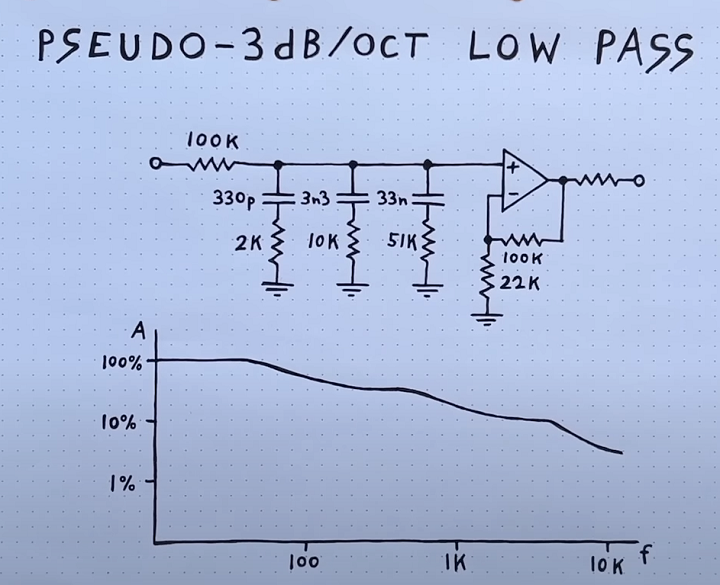 PSEUDO-3dB/OCT LOW PASS
100K
330p 3n3 33n
2K 10K 51K
+
-
100K
22K
A
100%
10%
1%
100 1K 10K f